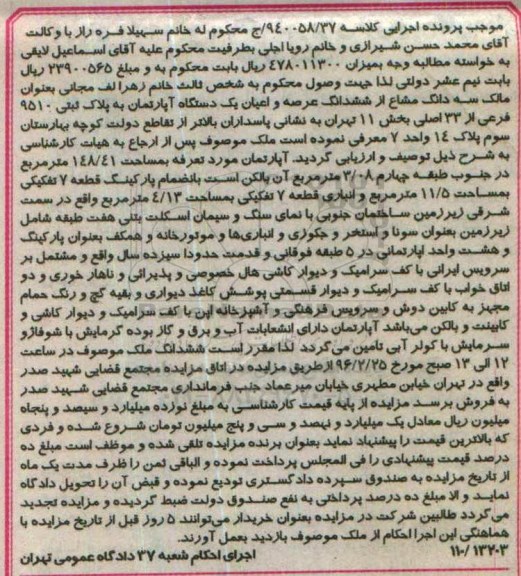 موجب پرونده اجرایی کلاسه ۹٤۰۰۵۸/۳۷/ج محکوم له خانم سهیلا فره راز با وکالت
آقای محمد حسن شیرازی و خانم رویا اجلی بطرفیت محکوم علیه آقای اسماعیل لایقی
به خواسته مطالبه وجه بمیزان ٤۷۸۰۱۱۳۰۰ ریال بابت محکوم به و مبلغ ۲۳۹۰۰۵۶۵ ریال
بابت نیم عشر دولتی لذا جهت وصول محکوم به شخص ثالث خانم زهرا لف مجانی بعنوان
مالک سه دانگ مشاع از ششدانگ عرصه و اعیان یک دستگاه آپارتمان به پلاک ثبتی ۹۵۱۰
فرعی از ۳۳ اصلی بخش ۱۱ تهران به نشانی پاسداران بالاتر از تقاطع دولت کوچه بهارستان
سوم پلاک ۱٤ واحد ۷ معرفی نموده است ملک موصوف پس از ارجاع به هیات کارشناسی
به شرح ذیل توصیف و ارزیابی گردید. آپارتمان مورد تعرفه بمساحت ۱٤۸/٤۱ مترمربع
در جنوب طبقه چهارم ۳/۰۸ مترمربع آن بالکن است بانضمام پارکینگ قطعه ۷ تفکیکی
بمساحت ۱۱/۵ مترمربع و انباری قطعه ۷ تفکیکی بمساحت ٤/۱۳ مترمربع واقع در سمت
شرقی زیرزمین ساختمان جنوبی با نمای سنگ و سیمان اسکلت بتنی هفت طبقه شامل
زیرزمین بعنوان سونا و استخر و جکوزی و انباریها و موتورخانه و همکف بعنوان پارکینگ
و هشت واحد آپارتمانی در ۵ طبقه فوقانی و قدمت حدودا سیزده سال واقع و مشتمل بر
سرویس ایرانی با کف سرامیک و دیوار کاشی هال خصوصی و پذیرائی و ناهار خوری و دو
اتاق خواب با کف سرامیک و دیوار قسمتی پوشش کاغذ دیواری و بقیه گچ و رنگ حمام
مجهز به کابین دوش و سرویس فرهنگی و آشپزخانه اپن با کف سرامیک و دیوار کاشی و
کابینت و بالکن می‌باشد آپارتمان دارای انشعابات آب و برق و گاز بوده گرمایش با شوفاژ و
سرمایش با کولر آبی تامین می‌گردد لذا مقرر است ششدانگ ملک موصوف در ساعت
۱۲ الی ۱۳ صبح مورخ ۹۶/۲/۲۵ ازطریق مزایده در اتاق مزایده مجتمع قضایی شهید صدر
واقع در تهران خیابن مطهری خیابان میرعماد جنب فرمانداری مجتمع قضایی شهید صدر
به فروش برسد مزایده از پایه قیمت کارشناسی به مبلغ نوزده میلیارد و سیصد و پنجاه
میلیون ریال معادل یک میلیارد و نهصد و سی و پنج میلیون تومان شروع شده و فردی
که بالاترین قیمت را پیشنهاد نماید بعنوان برنده مزایده تلقی شده و موظف است مبلغ ده
درصد قیمت پیشنهادی را فی المجلس پرداخت نموده و الباقی ثمن را ظرف مدت یک ماه
از تاریخ مزایده به صندوق سپرده دادگستری تودیع نموده و قبض آن را تحویل دادگاه
نماید و الا مبلغ ده درصد پرداختی به نفع صندوق دولت ضبط گردیده و مزایده تجدید
می‌گردد طالبین شرکت در مزایده بعنوان خریدار می‌توانند ۵ روز قبل از تاریخ مزایده با
هماهنگی این اجرا احکام از ملک موصوف بازدید بعمل آورند.
۱۱۰/۱۳۲۰۳ اجرای احکام شعبه ۳۷ دادگاه عمومی تهران